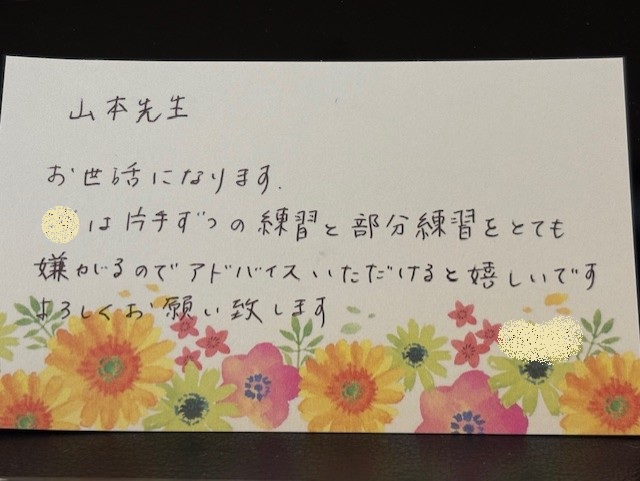 山本先生
お世話になります.
は片手ずつの練習と部分練習をとても
嫌がるのでアドバイスいただけると嬉しいです
よろしくお願い致します